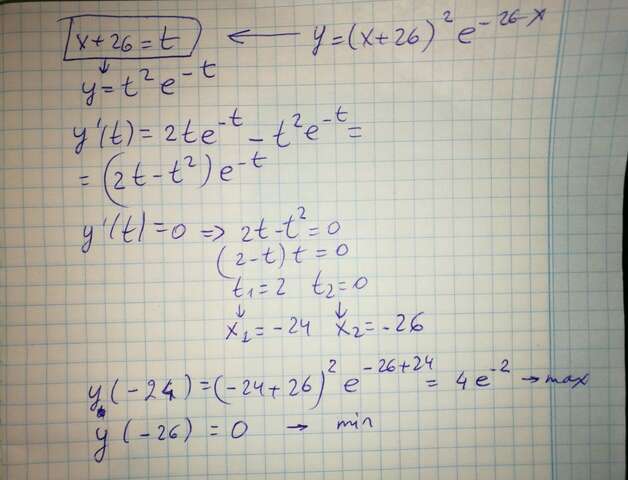 x+26=t ← y=(x+26)² e^{-26-x}
↓
y=t² e^{-t}
y'(t)=2te^{-t} - t²e^{-t} =
= (2t-t²) e^{-t}
y'(t)=0 => 2t-t²=0
(2-t) t = 0
t₁=2 t₂=0
↓ ↓
x₁=-24 x₂=-26
y(-24)=(-24+26)² e^{-26+24} = 4e^{-2} → max
y(-26) = 0 → min